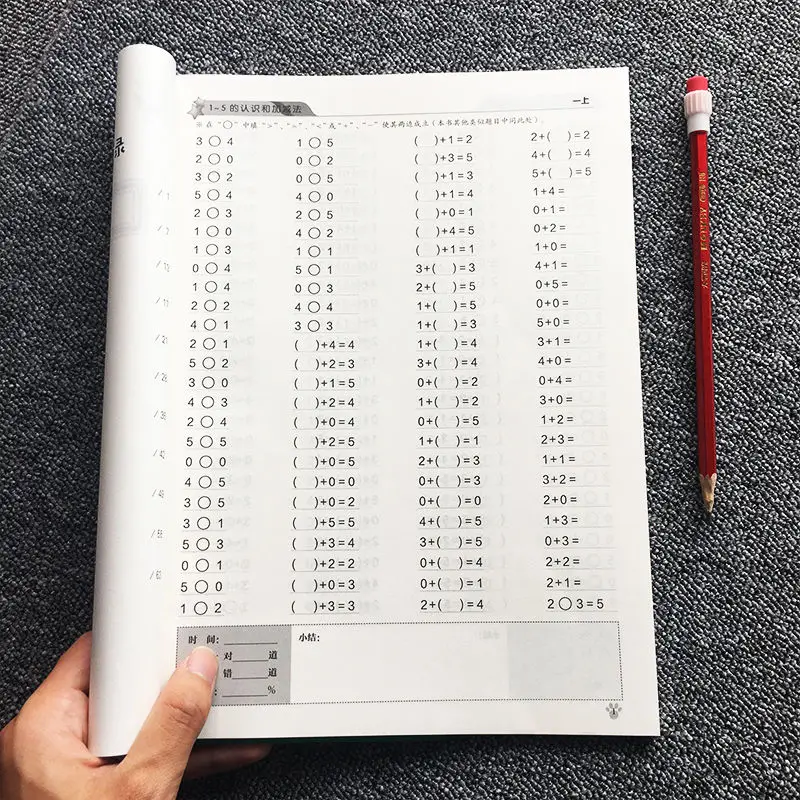 1~5 的认识和加减法
一上
※ 在 “○” 中填 “>”、“=”、“<”或“+”、“-” 使其两边成立(本书其他类似题目中同此处)。
3 ○ 4 1 ○ 5 ( )+1=2 2+( )=2
2 ○ 0 0 ○ 2 ( )+3=5 4+( )=4
3 ○ 2 0 ○ 5 ( )+1=3 5+( )=5
5 ○ 4 4 ○ 0 ( )+1=4 1+4=
2 ○ 3 2 ○ 5 ( )+0=1 0+1=
1 ○ 0 4 ○ 2 ( )+4=5 0+2=
1 ○ 3 1 ○ 1 ( )+1=1 1+0=
0 ○ 4 5 ○ 1 3+( )=3 4+1=
1 ○ 4 0 ○ 3 2+( )=5 0+5=
2 ○ 2 4 ○ 4 1+( )=5 0+0=
4 ○ 1 3 ○ 3 1+( )=3 5+0=
2 ○ 1 ( )+4=4 1+( )=4 3+1=
5 ○ 2 ( )+2=3 3+( )=4 4+0=
3 ○ 0 ( )+1=5 0+( )=2 0+4=
4 ○ 3 ( )+2=4 1+( )=2 3+0=
2 ○ 4 ( )+0=4 0+( )=5 1+2=
5 ○ 5 ( )+2=5 1+( )=1 2+3=
0 ○ 0 ( )+0=5 2+( )=3 1+1=
4 ○ 5 ( )+0=0 0+( )=3 3+2=
3 ○ 5 ( )+0=2 0+( )=0 2+0=
3 ○ 1 ( )+5=5 4+( )=5 1+3=
5 ○ 3 ( )+3=4 3+( )=5 0+3=
0 ○ 1 ( )+2=2 0+( )=4 2+2=
5 ○ 0 ( )+0=3 0+( )=1 2+1=
1 ○ 2 ( )+3=3 2+( )=4 2 ○ 3=5
时 间:
小结:
对 道
错 道
%
1